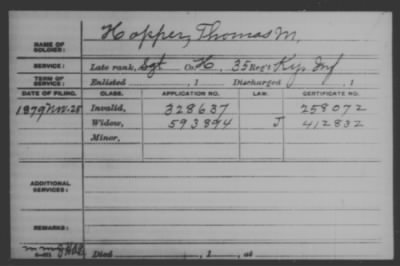 NAME OF SOLDIER: Hopper, Thomas M.
SERVICE: Late rank, Sgt Co. H, 35 Reg't Ky. Inf
TERM OF SERVICE: Enlisted , 1 Discharged , 1
DATE OF FILING. CLASS. APPLICATION NO. LAW. CERTIFICATE NO.
1879 Nov. 28 Invalid, 328637 258072
Widow, 593894 J 412832
Minor,
ADDITIONAL SERVICES:
REMARKS:
Died , 1 , at